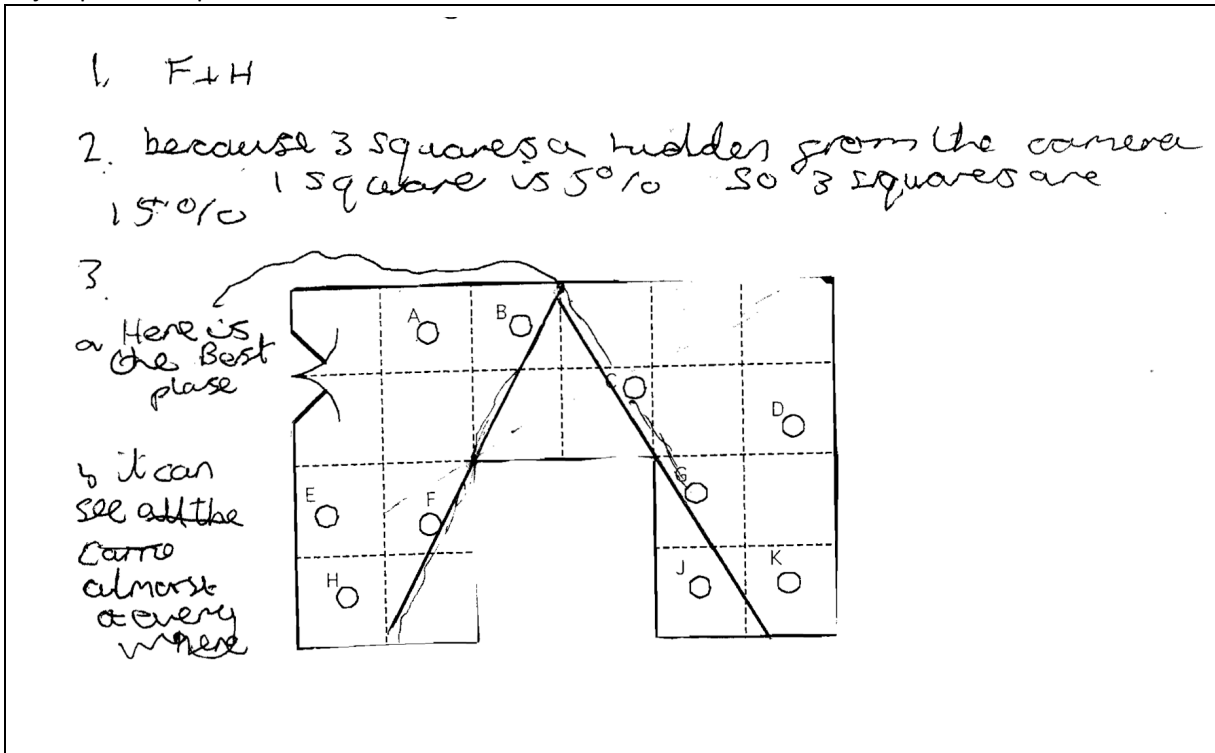 1. F+H
2. because 3 squares a hidden from the camera
1 square is 5% so 3 squares are
15%
3.
a Here is
the Best
plase
A
B
C
D
b it can
see all the
came
almorst
at every
where
E
F
G
H
J
K